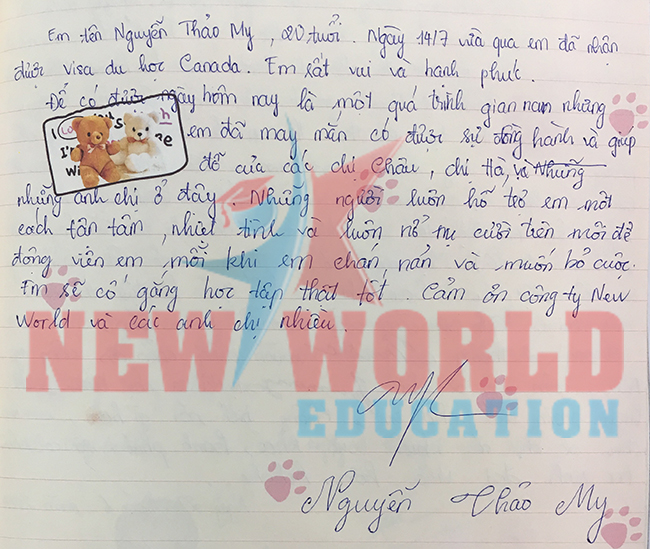 Em tên Nguyễn Thảo My, 20 tuổi. Ngày 14/7 vừa qua em đã nhận
được visa du học Canada. Em rất vui và hạnh phúc.
Để có được ngày hôm nay là một quá trình gian nan nhưng
em đã may mắn có được sự đồng hành và giúp
đỡ của các chị Châu, chị Hà, và Những
những anh chị ở đây. Những người luôn hỗ trợ em một
cách tân tâm, nhiệt tình và luôn nở nụ cười trên môi để
động viên em mỗi khi em chán nản và muốn bỏ cuộc.
Em sẽ cố gắng học tập thật tốt. Cảm ơn công ty New
World và các anh chị nhiều.
NEW WORLD
EDUCATION
Nguyễn Thảo My